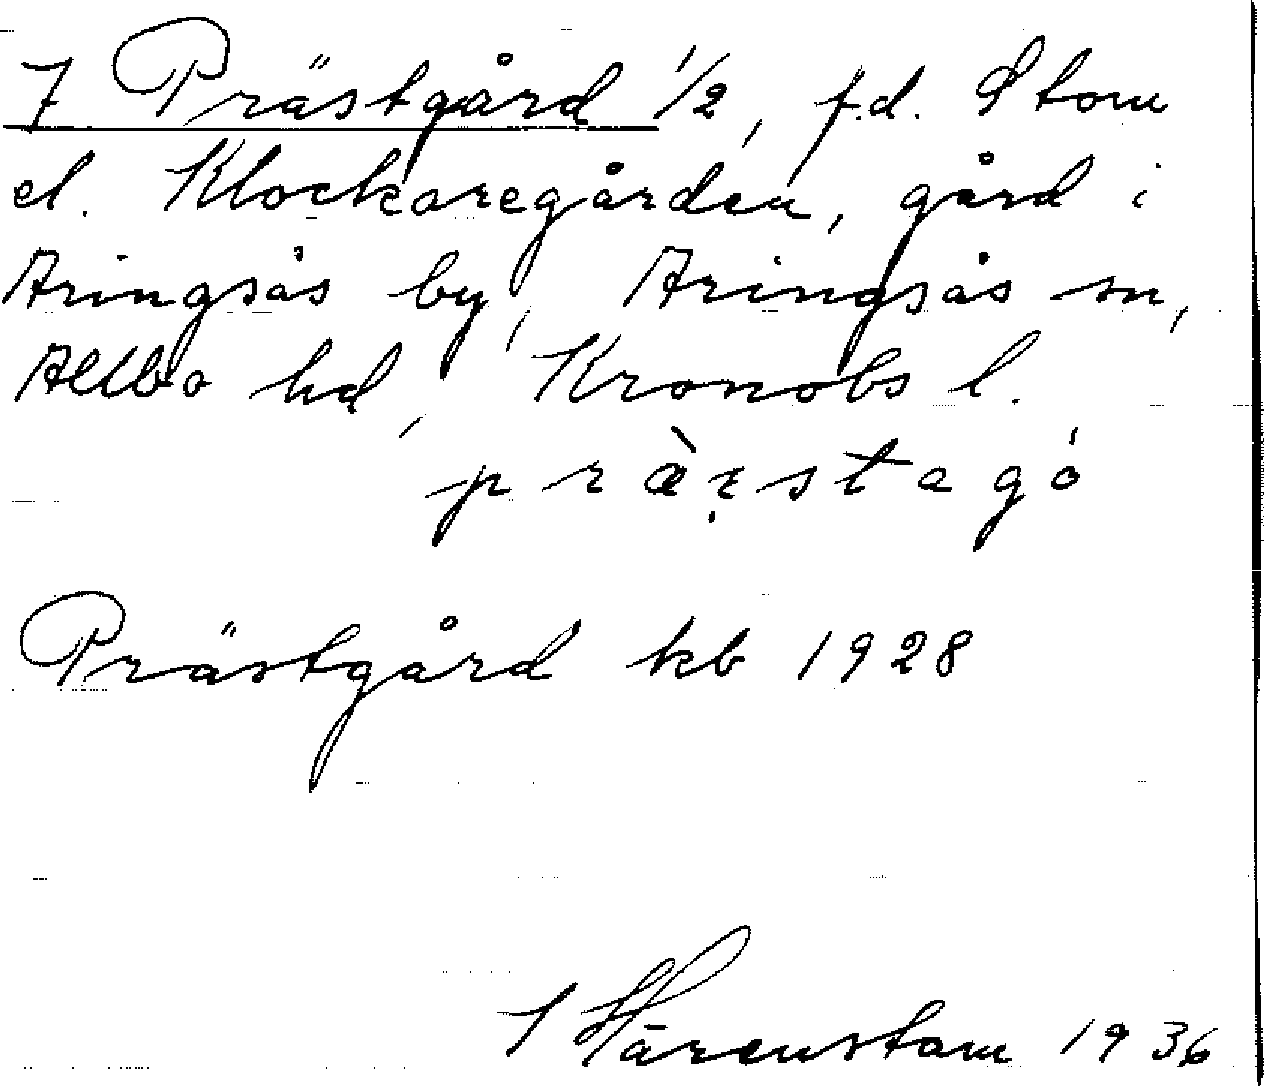 7 Prästgård 1/2, f.d. Stom
el. Klockaregården, gård i
Aringsås by, Aringsås sn,
Allbo hd, Kronobs l.
præ̀ʀ̣stagó
Prästgård kb 1928
S Härenstam 1936